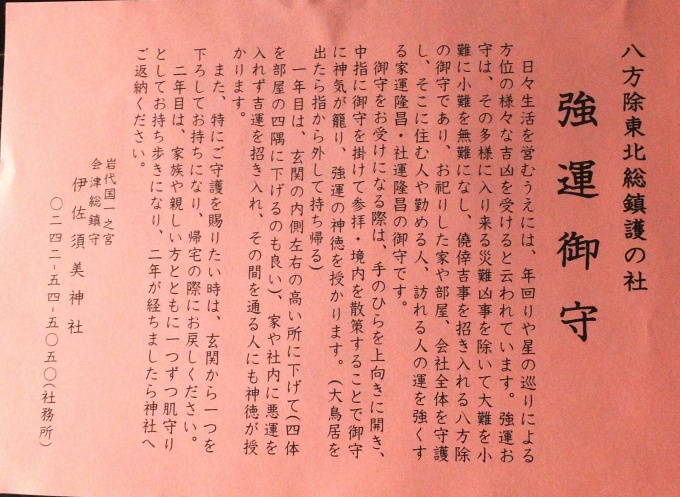 八方除東北総鎮護の社
強運御守
日々生活を営むうえには、年回りや星の巡りによる
方位の様々な吉凶を受けると云われています。強運お
守は、その多様に入り来る災難凶事を除いて大難を小
難に小難を無難になし、僥倖吉事を招き入れる八方除
の御守であり、お祀りした家や部屋、会社全体を守護
し、そこに住む人や勤める人、訪れる人の運を強くす
る家運隆昌・社運隆昌の御守です。
御守をお受けになる際は、手のひらを上向きに開き、
中指に御守を掛けて参拝・境内を散策することで御守
に神気が籠り、強運の神徳を授かります。（大鳥居を
出たら指から外して持ち帰る）
一年目は、玄関の内側左右の高い所に下げて（四体
を部屋の四隅に下げるのも良い）、家や社内に悪運を
入れず吉運を招き入れ、その間を通る人にも神徳が授
かります。
また、特にご守護を賜りたい時は、玄関から一つを
下ろしてお持ちになり、帰宅の際にお戻しください。
二年目は、家族や親しい方とともに一つずつ肌守り
としてお持ち歩きになり、二年が経ちましたら神社へ
ご返納ください。
岩代国一之宮
会津総鎮守
伊佐須美神社
〇二四二-五四-五〇五〇（社務所）